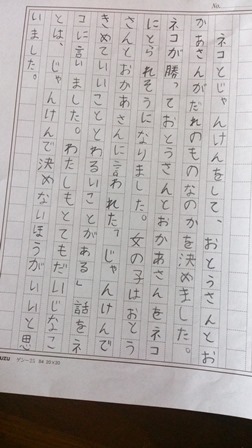 ネコとじゃんけんをして、おとうさんとお
かあさんがだれのものなのかを決めました。
ネコが勝っておとうさんとおかあさんをネコ
にとられそうになりました。女の子はおとう
さんとおかあさんに言われた「じゃんけんで
きめていいこととわるいことがある」話をネ
コに言いました。わたしもとてもだいじなこ
とは、じゃんけんで決めないほうがいいと思
いました。
No.